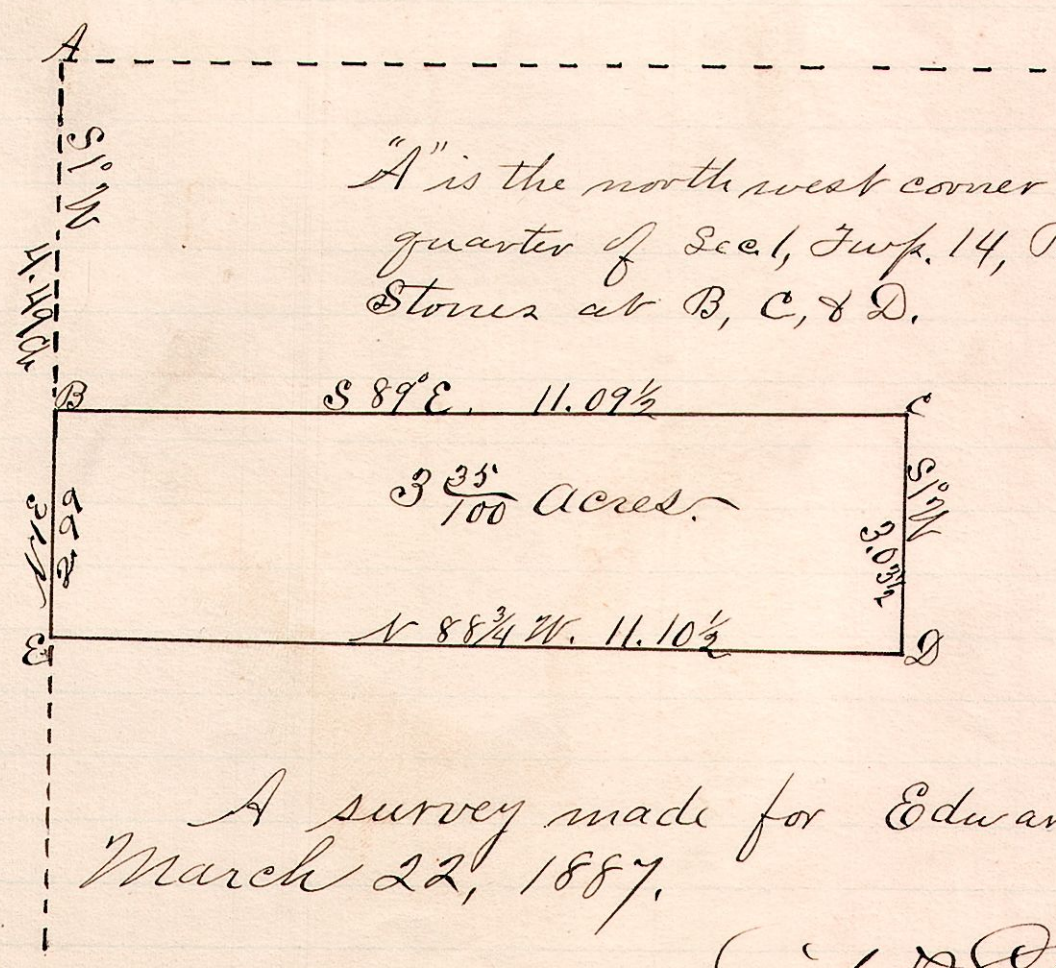 A
S 1° W
4.49 ch
"A" is the north west corner
quarter of Sec. 1, Twp. 14,
Stones at B, C, & D.
B
S 89° E. 11.09½
C
3 35/100 Acres.
2 99
S 1° W
3.03½
N 88¾ W. 11.10½
E
D
A survey made for Edwar
March 22, 1887.